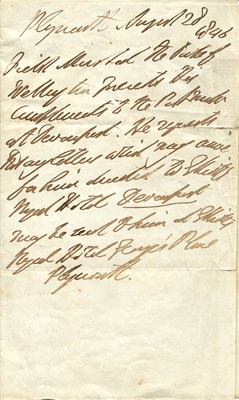 Plymouth August 28 1846
Field Marshal the Duke of
Wellington presents his
Compliments to the Postmaster
at Devonport. He requests
that any letters which may arrive
for him directed to
Royal Hotel Devonport
may be sent to him at
Royal Hotel Place
Plymouth.